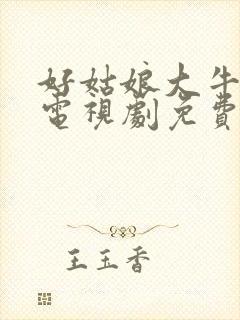 好姑娘大牛
電視劇免費
王玉香